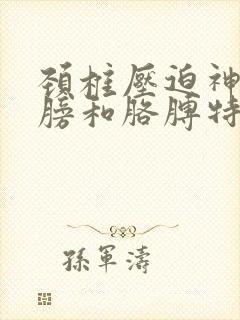 頚柱壓迫神
膀和胳膊特
孫軍濤